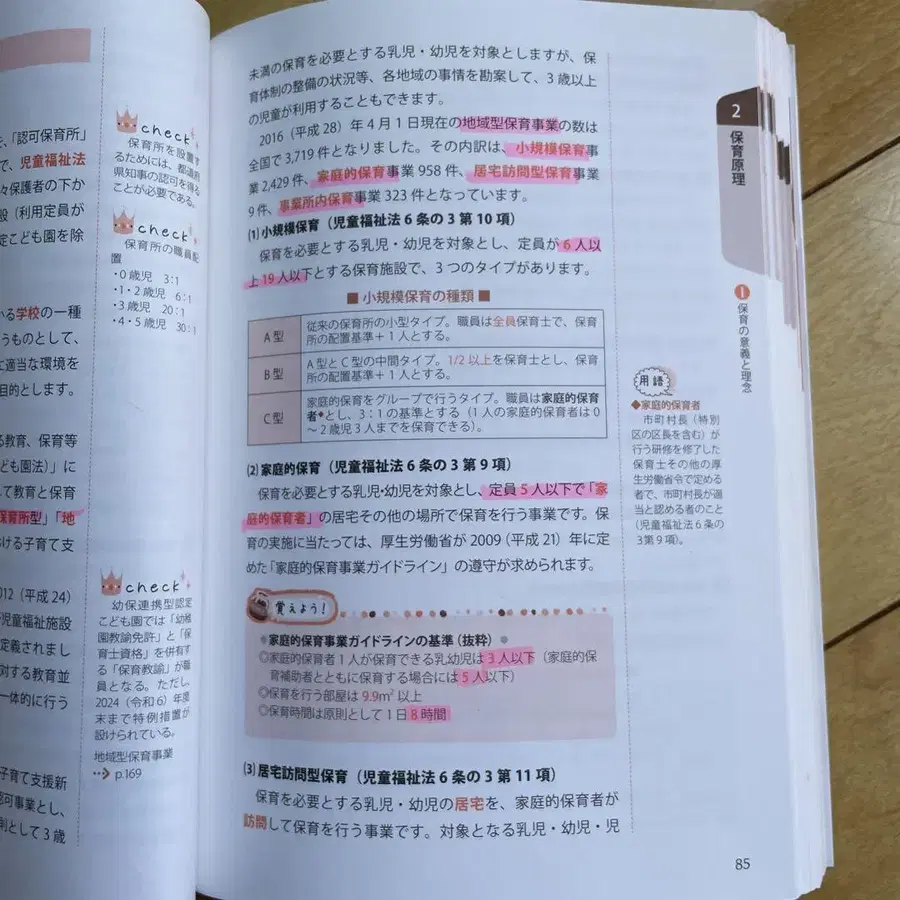 、「認可保育所」
で、児童福祉法
々保護者の下か
設（利用定員が
定こども園を除
かる学校の一種
うものとして、
に適当な環境を
目的とします。
る教育、保育等
ども園法）」に
して教育と保育
保育所型」「地
ける子育て支
012（平成24）
児童福祉施設
定義されまし
対する教育並
一体的に行う
子育て支援新
認可事業とし、
則として3歳
check
保育所を設置す
るためには、都道府
県知事の認可を得る
ことが必要である。
check
保育所の職員配
置
・0歳児 3:1
・1・2歳児 6:1
・3歳児 20:1
・4・5歳児 30:1
check
幼保連携型認定
こども園では「幼稚
園教諭免許」と「保
育士資格」を併有す
る「保育教諭」が職
員となる。ただし、
2024（令和6）年度
末まで特例措置が
設けられている。
地域型保育事業
p.169
未満の保育を必要とする乳児・幼児を対象としますが、保
育体制の整備の状況等、各地域の事情を勘案して、3歳以上
の児童が利用することもできます。
2016（平成28）年4月1日現在の地域型保育事業の数は
全国で3,719件となりました。その内訳は、小規模保育事
業2,429件、家庭的保育事業958件、居宅訪問型保育事業
9件、事業所内保育事業323件となっています。
⑴小規模保育（児童福祉法6条の3第10項）
保育を必要とする乳児・幼児を対象とし、定員が6人以
上19人以下とする保育施設で、3つのタイプがあります。
■小規模保育の種類■
A型
従来の保育所の小型タイプ。職員は全員保育士で、保育
所の配置基準＋1人とする。
B型
A型とC型の中間タイプ。1/2以上を保育士とし、保育
所の配置基準＋1人とする。
C型
家庭的保育をグループで行うタイプ。職員は家庭的保育
者◆とし、3:1の基準とする（1人の家庭的保育者は0
～2歳児3人までを保育できる）。
⑵家庭的保育（児童福祉法6条の3第9項）
保育を必要とする乳児・幼児を対象とし、定員5人以下で「家
庭的保育者」の居宅その他の場所で保育を行う事業です。保
育の実施に当たっては、厚生労働省が2009（平成21）年に定
めた「家庭的保育事業ガイドライン」の遵守が求められます。
覚えよう！
●家庭的保育事業ガイドラインの基準（抜粋）●
◎家庭的保育者1人が保育できる乳幼児は3人以下（家庭的保
育補助者とともに保育する場合には5人以下）
◎保育を行う部屋は9.9m²以上
◎保育時間は原則として1日8時間
⑶居宅訪問型保育（児童福祉法6条の3第11項）
保育を必要とする乳児・幼児の居宅を、家庭的保育者が
訪問して保育を行う事業です。対象となる乳児・幼児・児
2
保育原理
1
保育の意義と理念
用語
◆家庭的保育者
市町村長（特別
区の区長を含む）が
行う研修を修了した
保育士その他の厚
生労働省令で定める
者で、市町村長が適
当と認める者のこと
（児童福祉法6条の
3第9項）。
85